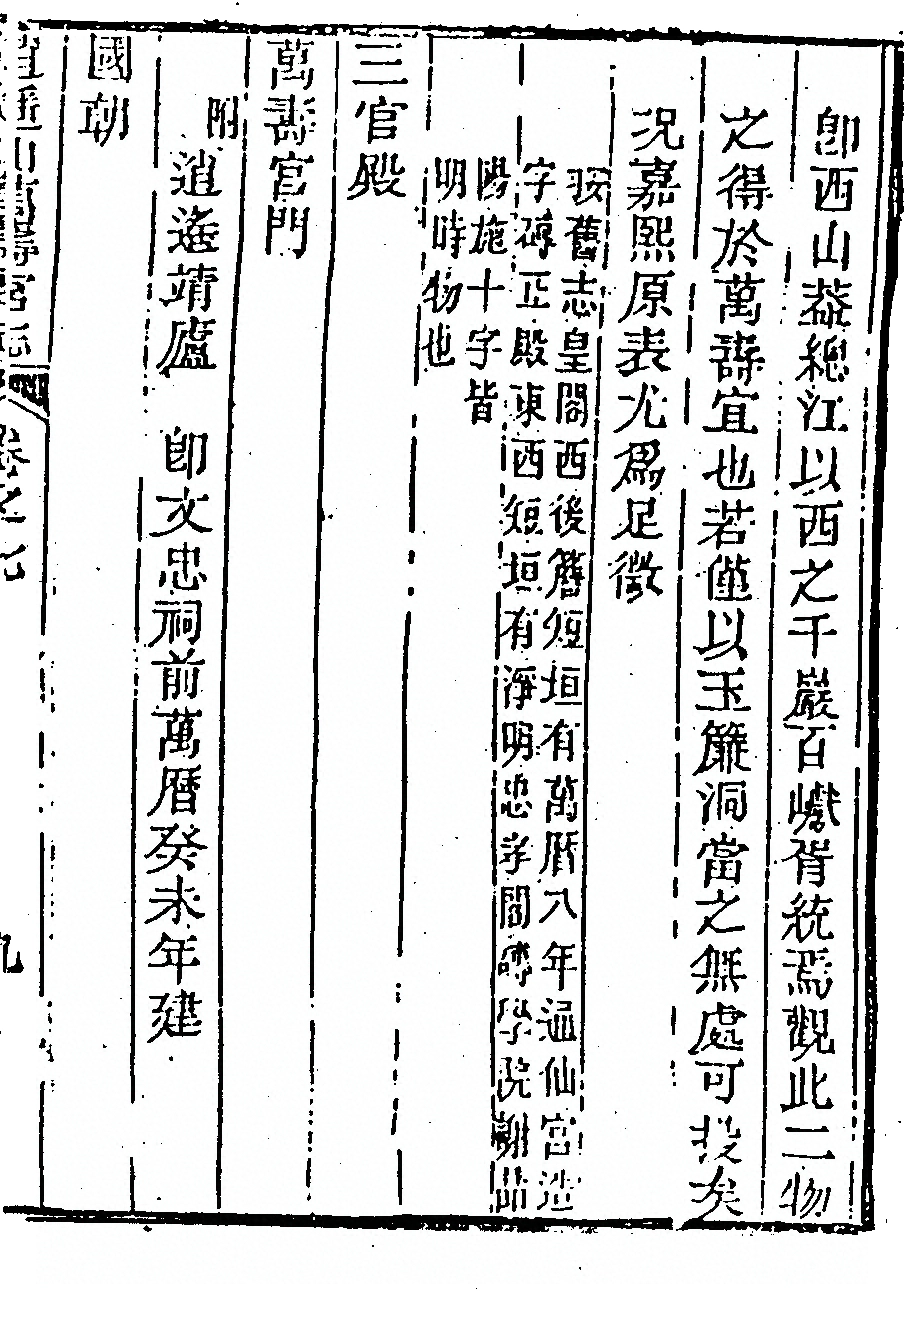 卽西山葢總江以西之千巖百巘胥統焉觀此二物
之得於萬壽宜也若僅以玉簾洞當之無處可投矣
况嘉熙原表尤爲足徵
按舊志皇閣西後簷短垣有萬曆八年逼仙宮造
字磚正殿東西短垣有淨明忠孝閣磚學院謝
陽施十字皆
明時物也
三官殿
萬壽宮門
附
逍遙靖廬　卽文忠祠前萬曆癸未年建
國朝
逍遙山萬壽宮志
卷之七
九